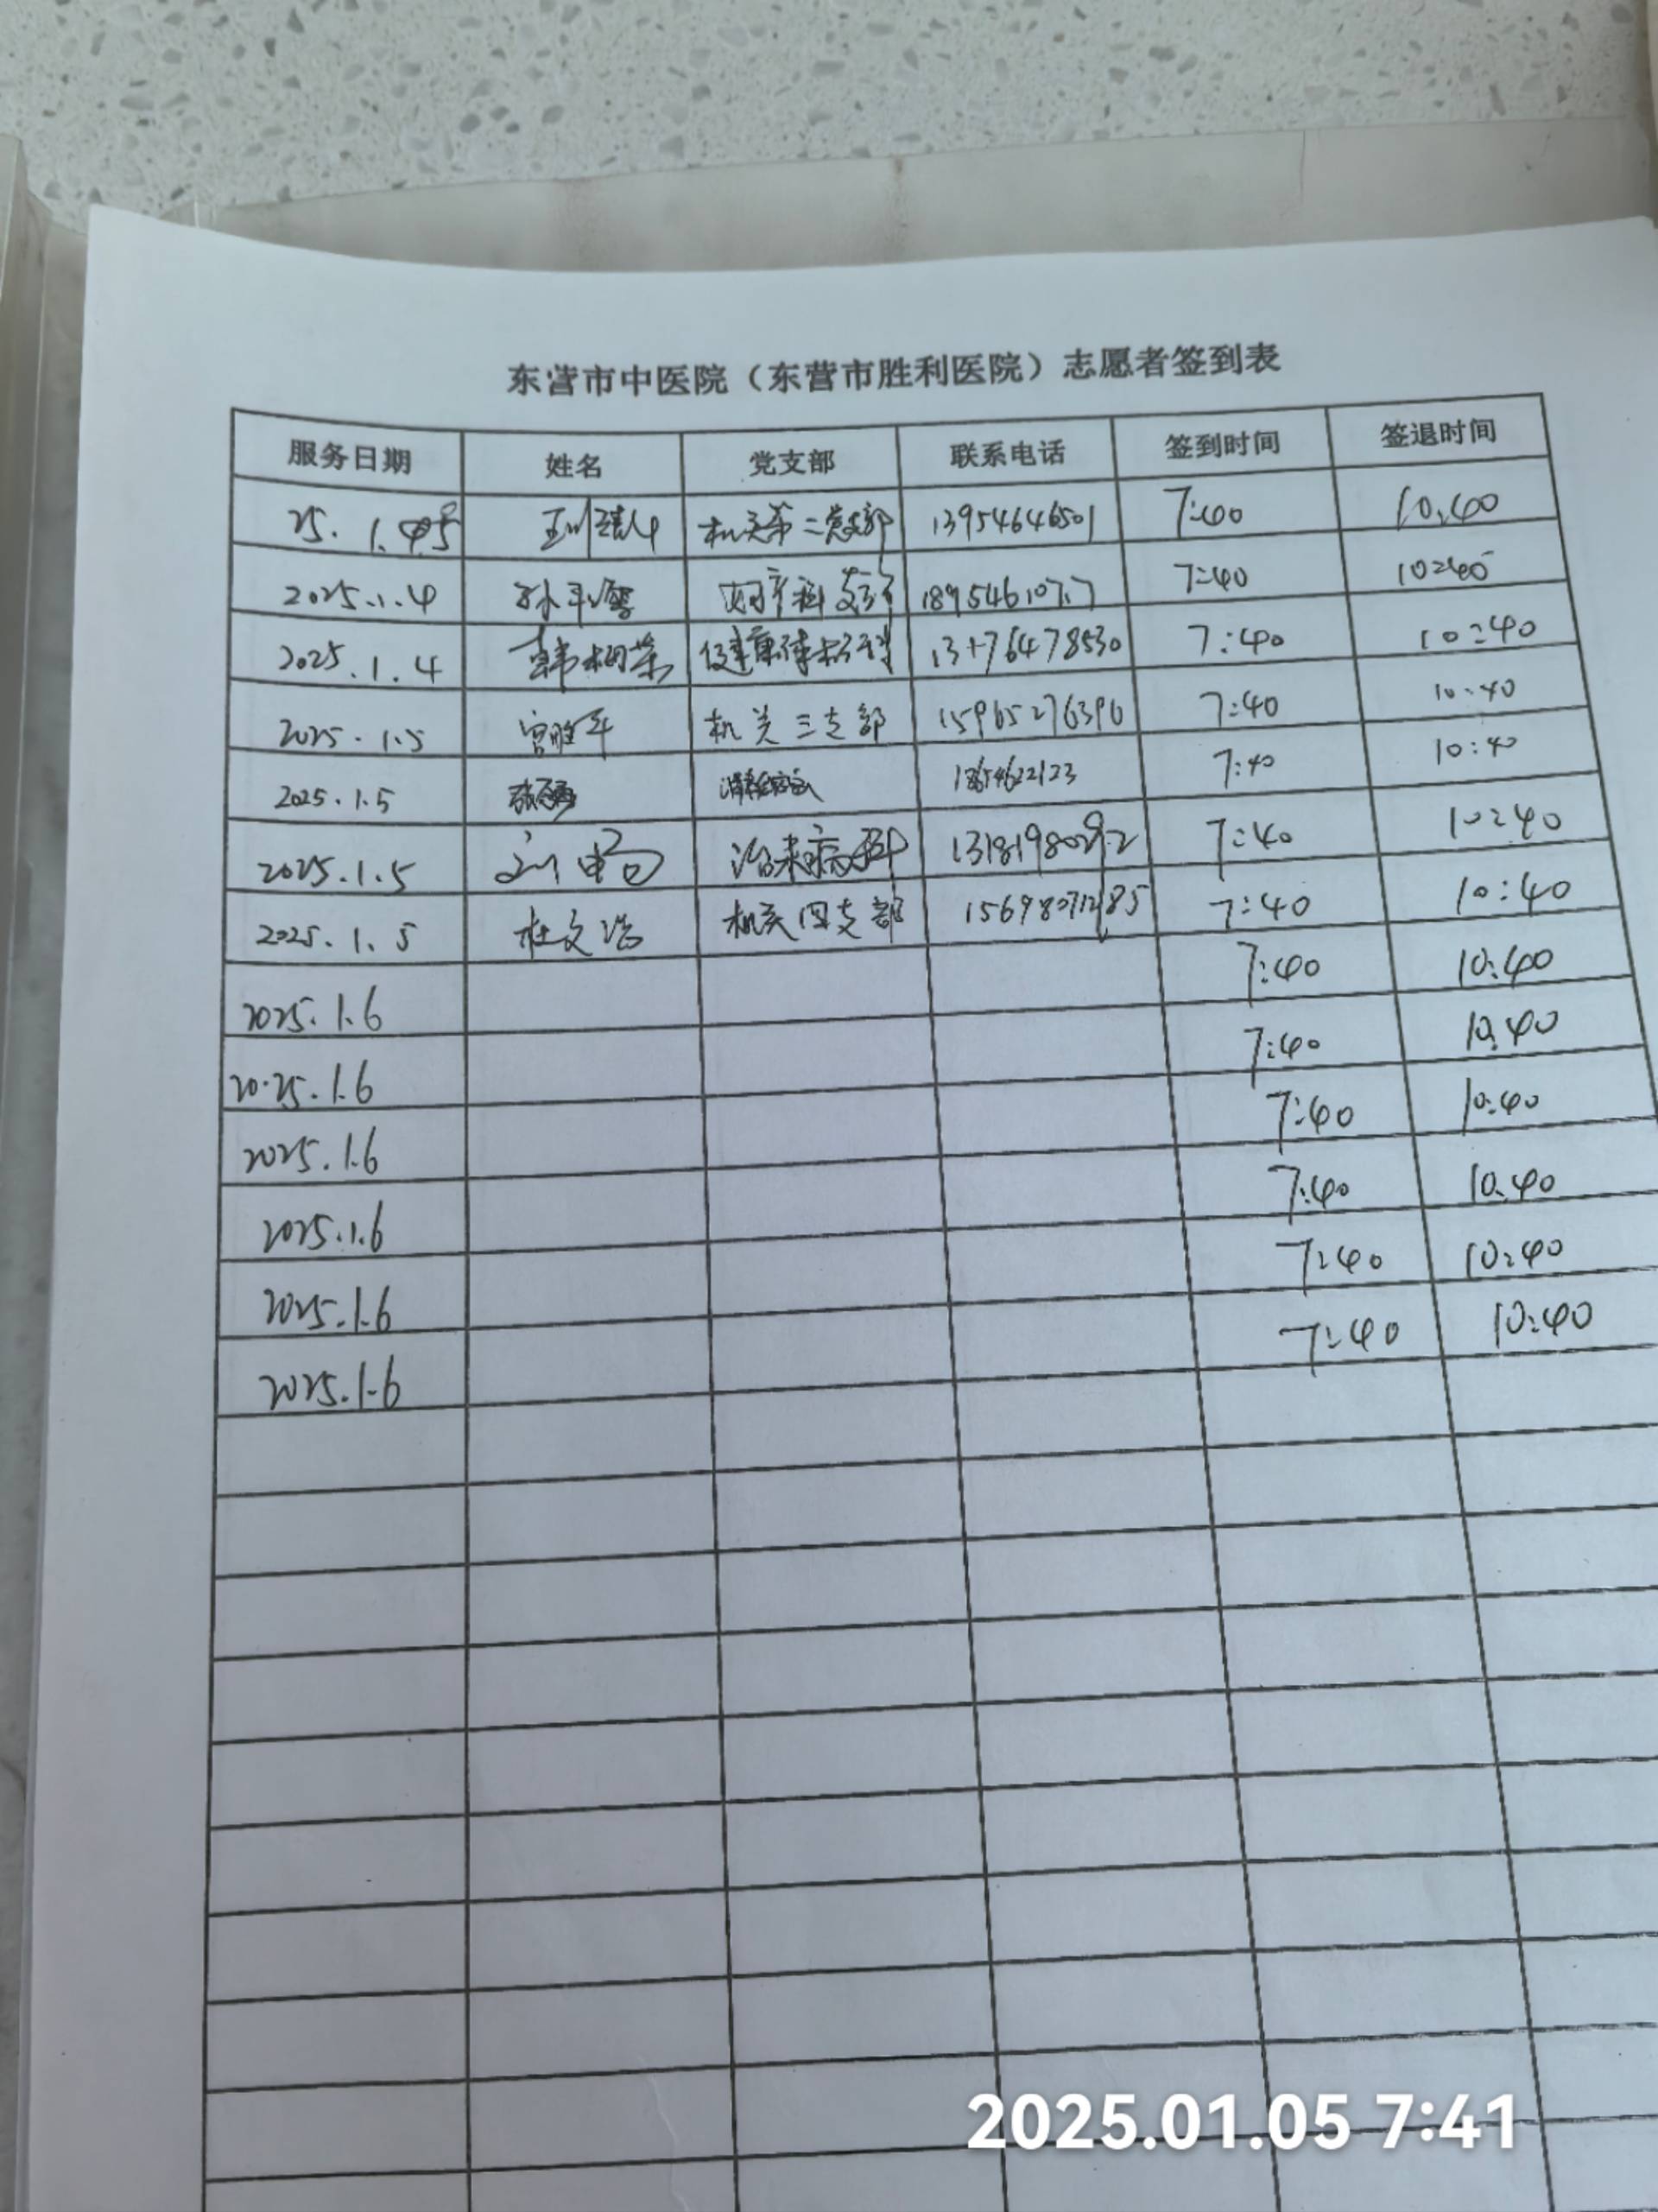 东营市中医院（东营市胜利医院）志愿者签到表
服务日期 姓名 党支部 联系电话 签到时间 签退时间
25. 1. 5 机关第二党支部 13954646501 7:40 10:40
2025.1.4 孙 18954610717 7:40 10:40
2025.1.4 韩梅荣 7:40 10:40
2025.1.5 宫胜军 机关三支部 15965276396 7:40 10:40
2025.1.5 7:40 10:40
2025.1.5 治未病科 7:40 10:40
2025.1.5 杜文浩 机关四支部 7:40 10:40
2025.1.6 7:40 10:40
2025.1.6 7:40 10:40
2025.1.6 7:40 10:40
2025.1.6 7:40 10:40
2025.1.6 7:40 10:40
2025.1.6 7:40 10:40
2025.01.05 7:41